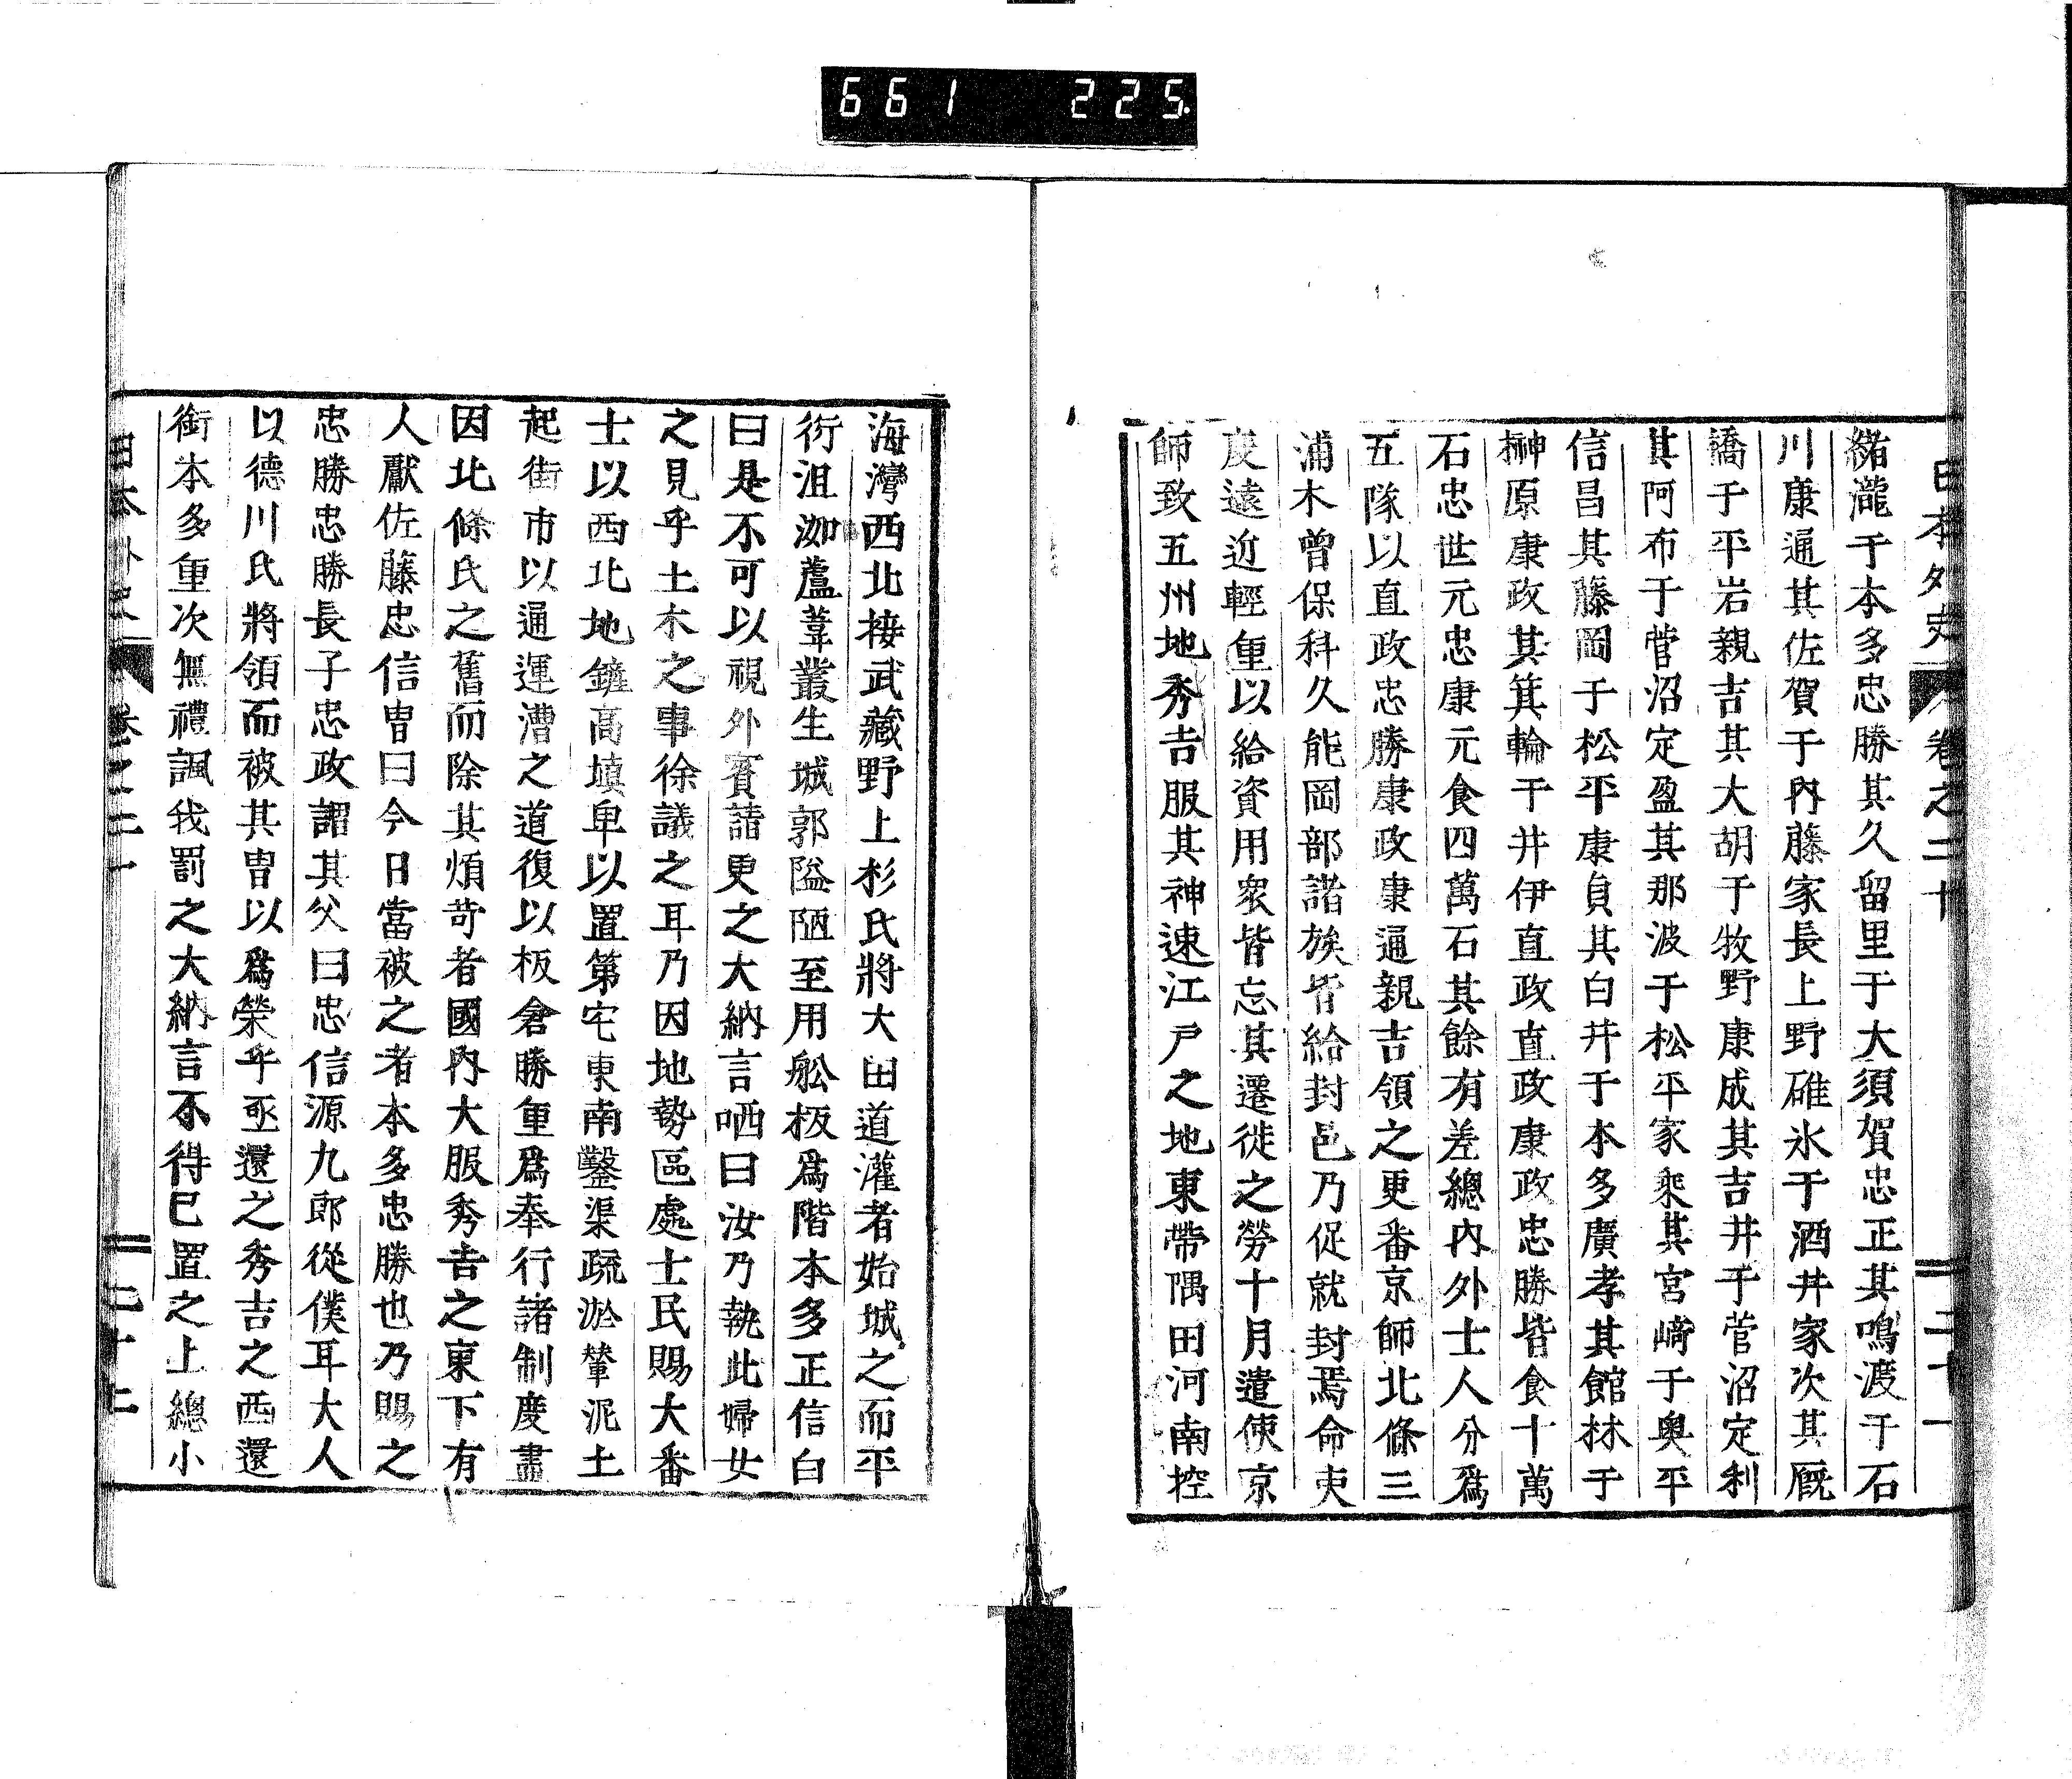 661 225
日本外史 卷之二十 二十一
緒瀧于本多忠勝其久留里于大須賀忠正其鳴渡于石
川康通其佐賀于內藤家長上野碓氷于酒井家次其厩
橋于平岩親吉其大胡于牧野康成其吉井于菅沼定利
其阿布于菅沼定盈其那波于松平家乘其宮崎于奧平
信昌其藤岡于松平康貞其白井于本多廣孝其館林于
榊原康政其箕輪于井伊直政直政康政忠勝皆食十萬
石忠世元忠康元食四萬石其餘有差總內外士人分爲
五隊以直政忠勝康政康通親吉領之更番京師北條三
浦木曾保科久能岡部諸族皆給封邑乃促就封焉命吏
度遠近輕重以給資用衆皆忘其遷徙之勞十月遣使京
師致五州地秀吉服其神速江戶之地東帶隅田河南控
海灣西北接武藏野上杉氏將大田道灌者始城之而平
衍沮洳蘆葦叢生城郭隘陋至用舩板爲階本多正信白
曰是不可以視外賓請更之大納言哂曰汝乃執此婦女
之見乎土木之事徐議之耳乃因地勢區處士民賜大番
士以西北地鏟高塡卑以置第宅東南鑿渠疏淤輦泥土
起街市以通運漕之道復以板倉勝重爲奉行諸制度盡
因北條氏之舊而除其煩苛者國內大服秀吉之東下有
人獻佐藤忠信冑曰今日當被之者本多忠勝也乃賜之
忠勝忠勝長子忠政謂其父曰忠信源九郎從僕耳大人
以德川氏將領而被其冑以爲榮乎亟還之秀吉之西還
銜本多重次無禮諷我罰之大納言不得已置之上總小
日本外史 卷之二十